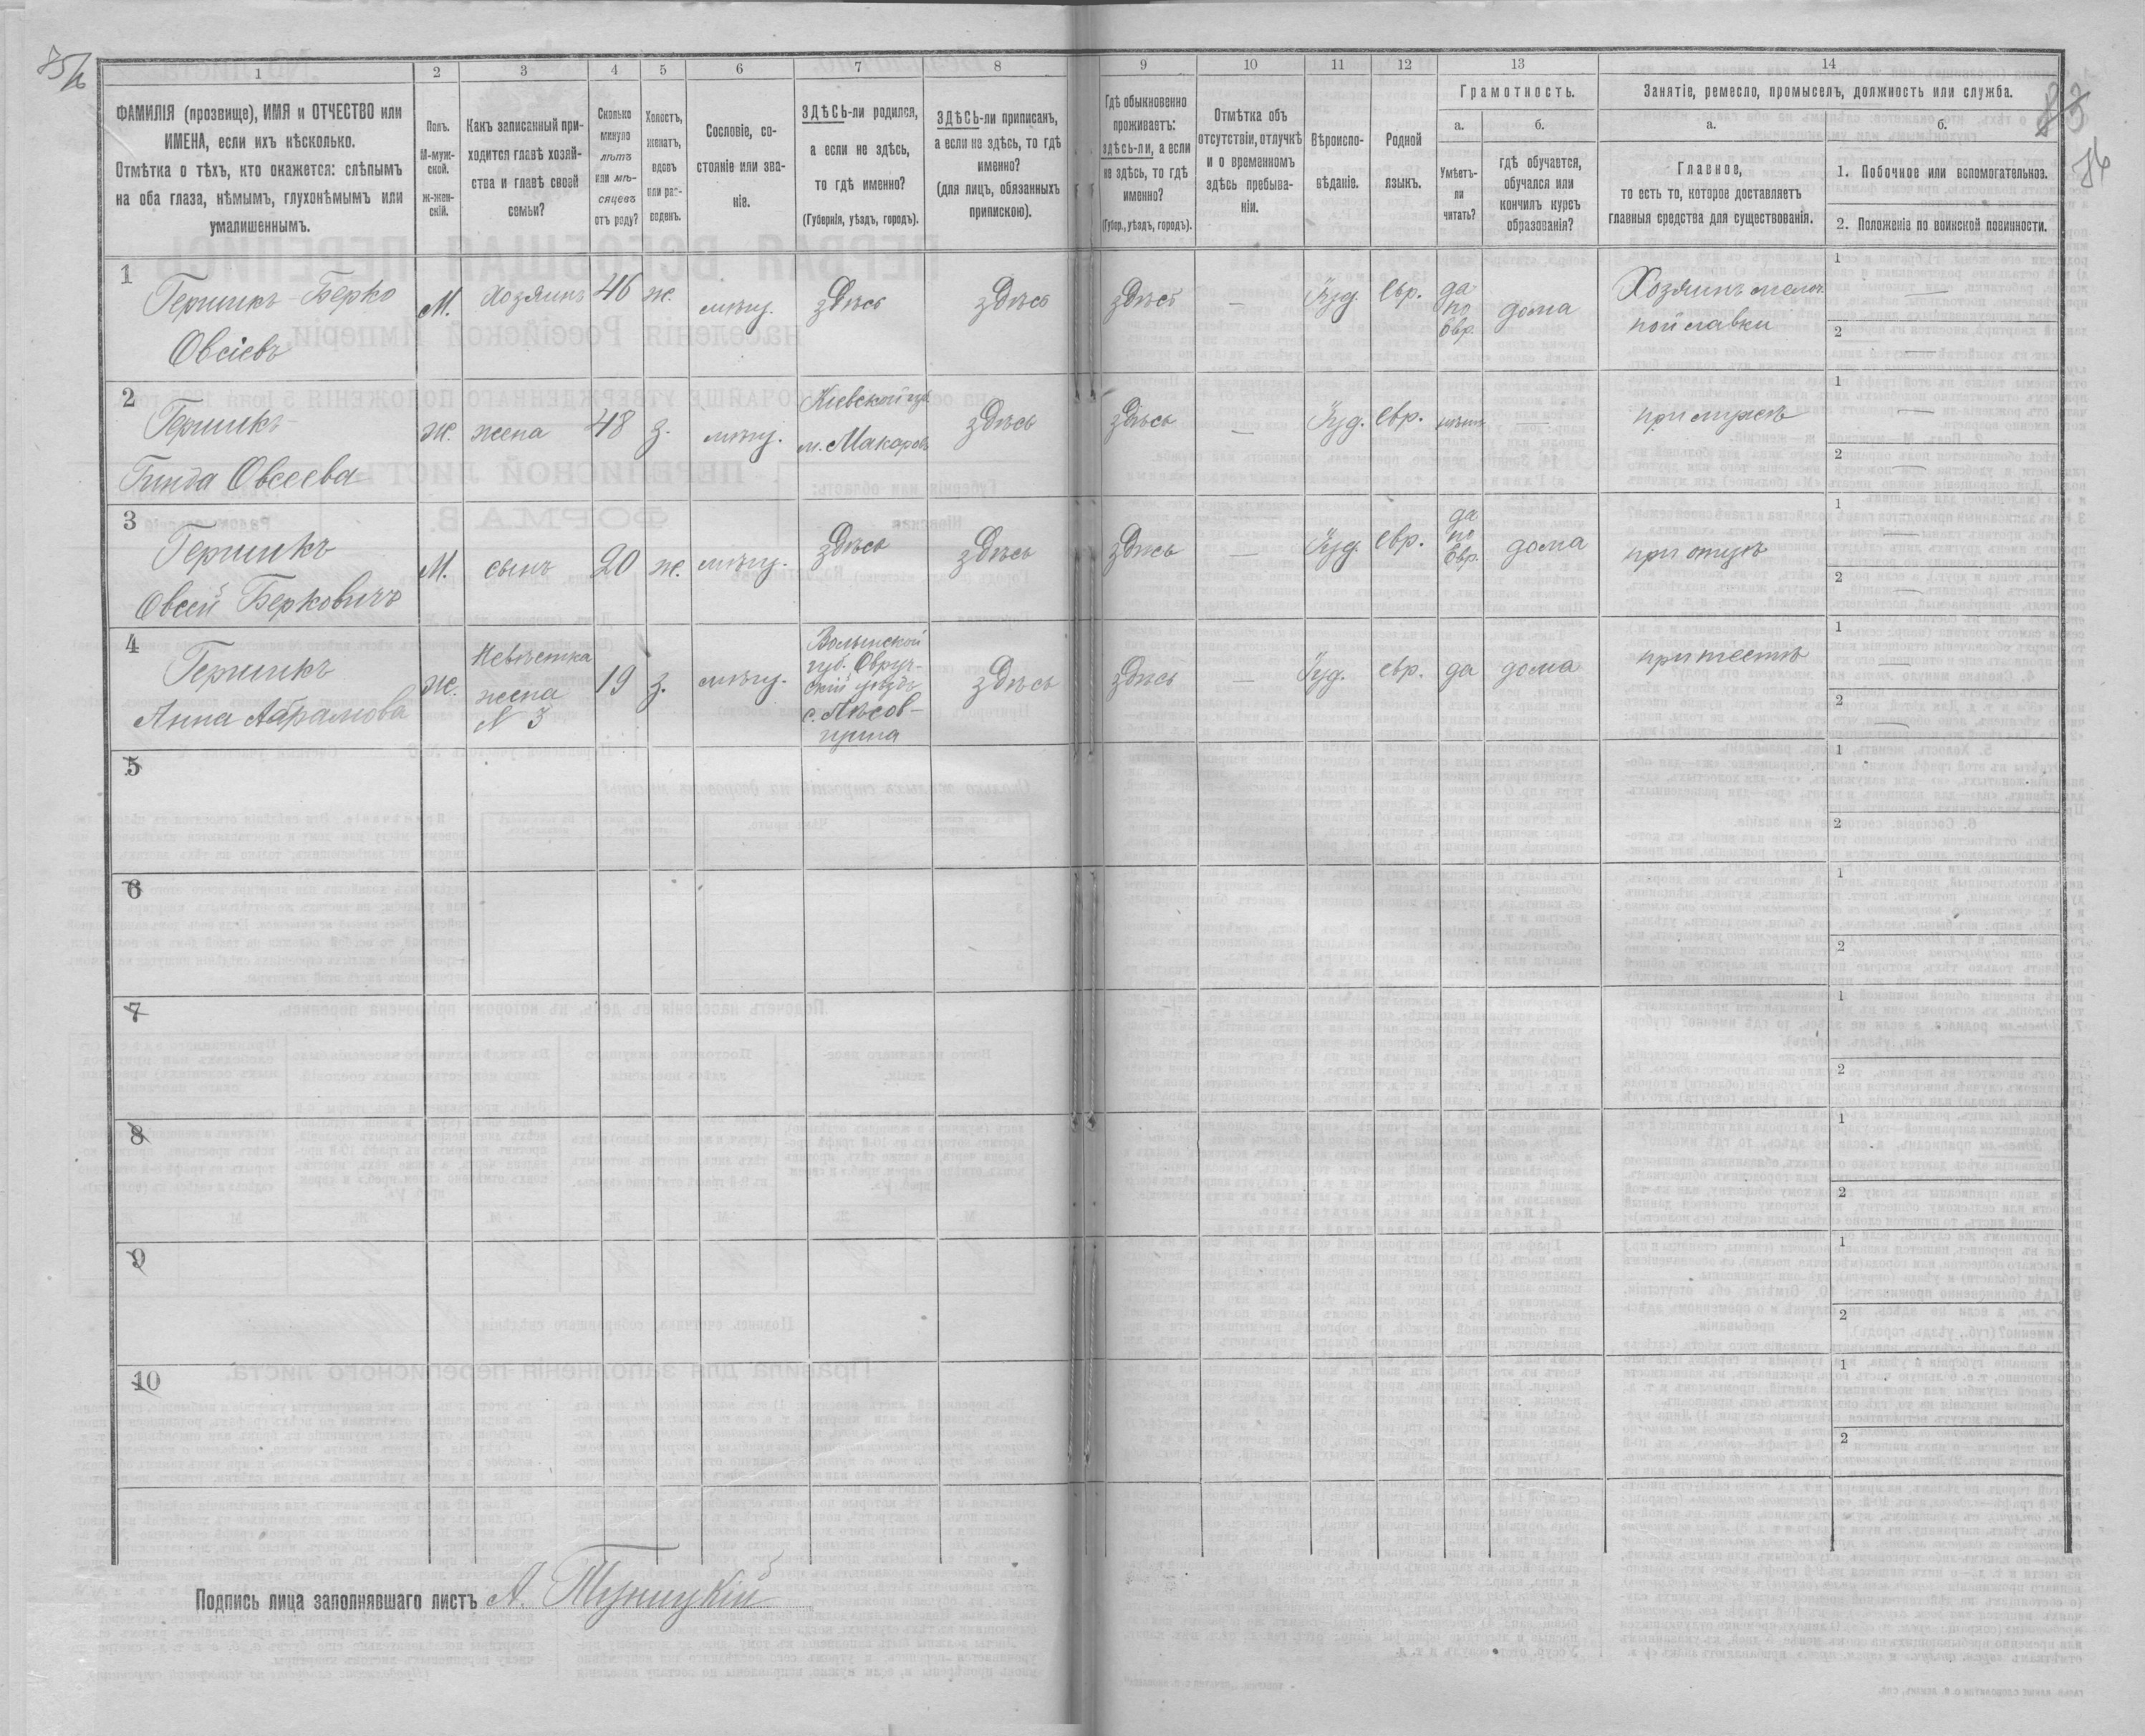 75/76
1
2
3
4
5
6
7
8
9
10
11
12
13
14
ФАМИЛІЯ (прозвище), ИМЯ и ОТЧЕСТВО или
ИМЕНА, если ихъ нѣсколько.
Отмѣтка о тѣхъ, кто окажется: слѣпымъ
на оба глаза, нѣмымъ, глухонѣмымъ или
умалишеннымъ.
Полъ.
М-муж-
ской.
ж-жен-
скій.
Какъ записанный при-
ходится главѣ хозяй-
ства и главѣ своей
семьи?
Сколько
минуло
лѣтъ
или мѣ-
сяцевъ
отъ роду?
Холостъ,
женатъ,
вдовъ
или раз-
веденъ.
Сословіе, со-
стояніе или зва-
ніе.
ЗДѢСЬ-ли родился,
а если не здѣсь,
то гдѣ именно?
(Губернія, уѣздъ, городъ).
ЗДѢСЬ-ли приписанъ,
а если не здѣсь, то гдѣ
именно?
(для лицъ, обязанныхъ
припискою).
Гдѣ обыкновенно
проживаетъ:
здѣсь-ли, а если
не здѣсь, то гдѣ
именно?
(Губер., уѣздъ, городъ).
Отмѣтка объ
отсутствіи, отлучкѣ
и о временномъ
здѣсь пребыва-
ніи.
Вѣроиспо-
вѣданіе.
Родной
языкъ.
Грамотность.
а.
Умѣетъ-
ли
читать?
б.
гдѣ обучается,
обучался или
кончилъ курсъ
образованія?
Занятіе, ремесло, промыселъ, должность или служба.
а.
Главное,
то есть то, которое доставляетъ
главныя средства для существованія.
б.
1. Побочное или вспомогательное.
2. Положеніе по воинской повинности.
83
76
1
Гершикъ Берко
Овсіевъ
М.
Хозяинъ
46
ж.
мѣщ.
здѣсь
здѣсь
здѣсь
—
Іуд.
Евр.
да
по
Евр.
дома
Хозяинъ мелоч
ной лавки
1 —
2 —
2
Гершикъ
Гинда Овсеева
ж.
жена
48
з.
мѣщ.
Кіевской губ
м. Макаровъ
здѣсь
здѣсь
—
Іуд.
Евр.
нѣтъ
—
при мужѣ
1 —
2 —
3
Гершикъ
Овсей Берковичъ
М.
сынъ
20
ж.
мѣщ.
здѣсь
здѣсь
здѣсь
—
Іуд.
Евр.
да
по
Евр.
дома
при отцѣ
1 —
2 —
4
Гершикъ
Анна Абрамова
ж.
Невѣстка
жена
N 3
19
з.
мѣщ.
Волынской
губ. Овруч-
скій уѣздъ
с. Лѣсов-
щина
здѣсь
здѣсь
—
Іуд.
евр.
да
дома
при тестѣ
1 —
2 —
5
1
2
6
1
2
7
1
2
8
1
2
9
1
2
10
1
2
Подпись лица заполнявшаго листъ А.